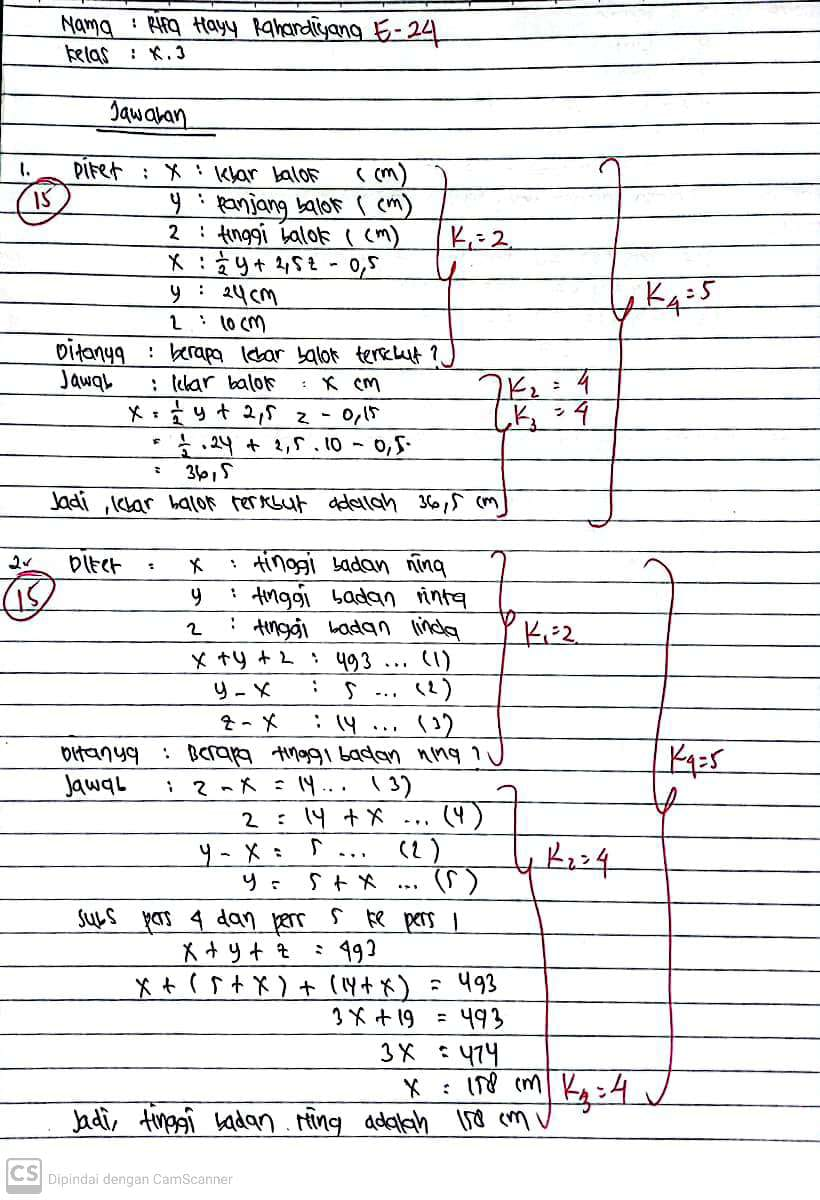 Nama : Rifa Hayy Rahardiyang E-24
Kelas : X.3
Jawaban
1. Diket : x : lebar balok (cm)
15
y : panjang balok (cm)
z : tinggi balok (cm) K₁ = 2
x : ½ y + 2,5z - 0,5
y : 24 cm K₄ = 5
z : 10 cm
Ditanya : berapa lebar balok tersebut?
Jawab : lebar balok : x cm K₂ = 4
x = ½ y + 2,5 z - 0,15 K₃ = 4
= ½ . 24 + 2,5 . 10 - 0,5
= 36,5
Jadi, lebar balok tersebut adalah 36,5 cm
2. Diket : x : tinggi badan nina
15
y : tinggi badan rinta
z : tinggi badan linda K₁=2
x + y + z : 493 ... (1)
y - x : 5 ... (2)
z - x : 14 ... (3)
Ditanya : Berapa tinggi badan nina? K₄=5
Jawab : z - x = 14 ... (3)
z = 14 + x ... (4)
y - x = 5 ... (2) K₂=4
y = 5 + x ... (5)
Subs pers 4 dan pers 5 ke pers 1
x + y + z = 493
x + (5 + x) + (14 + x) = 493
3x + 19 = 493
3x = 474
x = 158 cm K₃=4
Jadi, tinggi badan adalah 158 cm
CS Dipindai dengan CamScanner